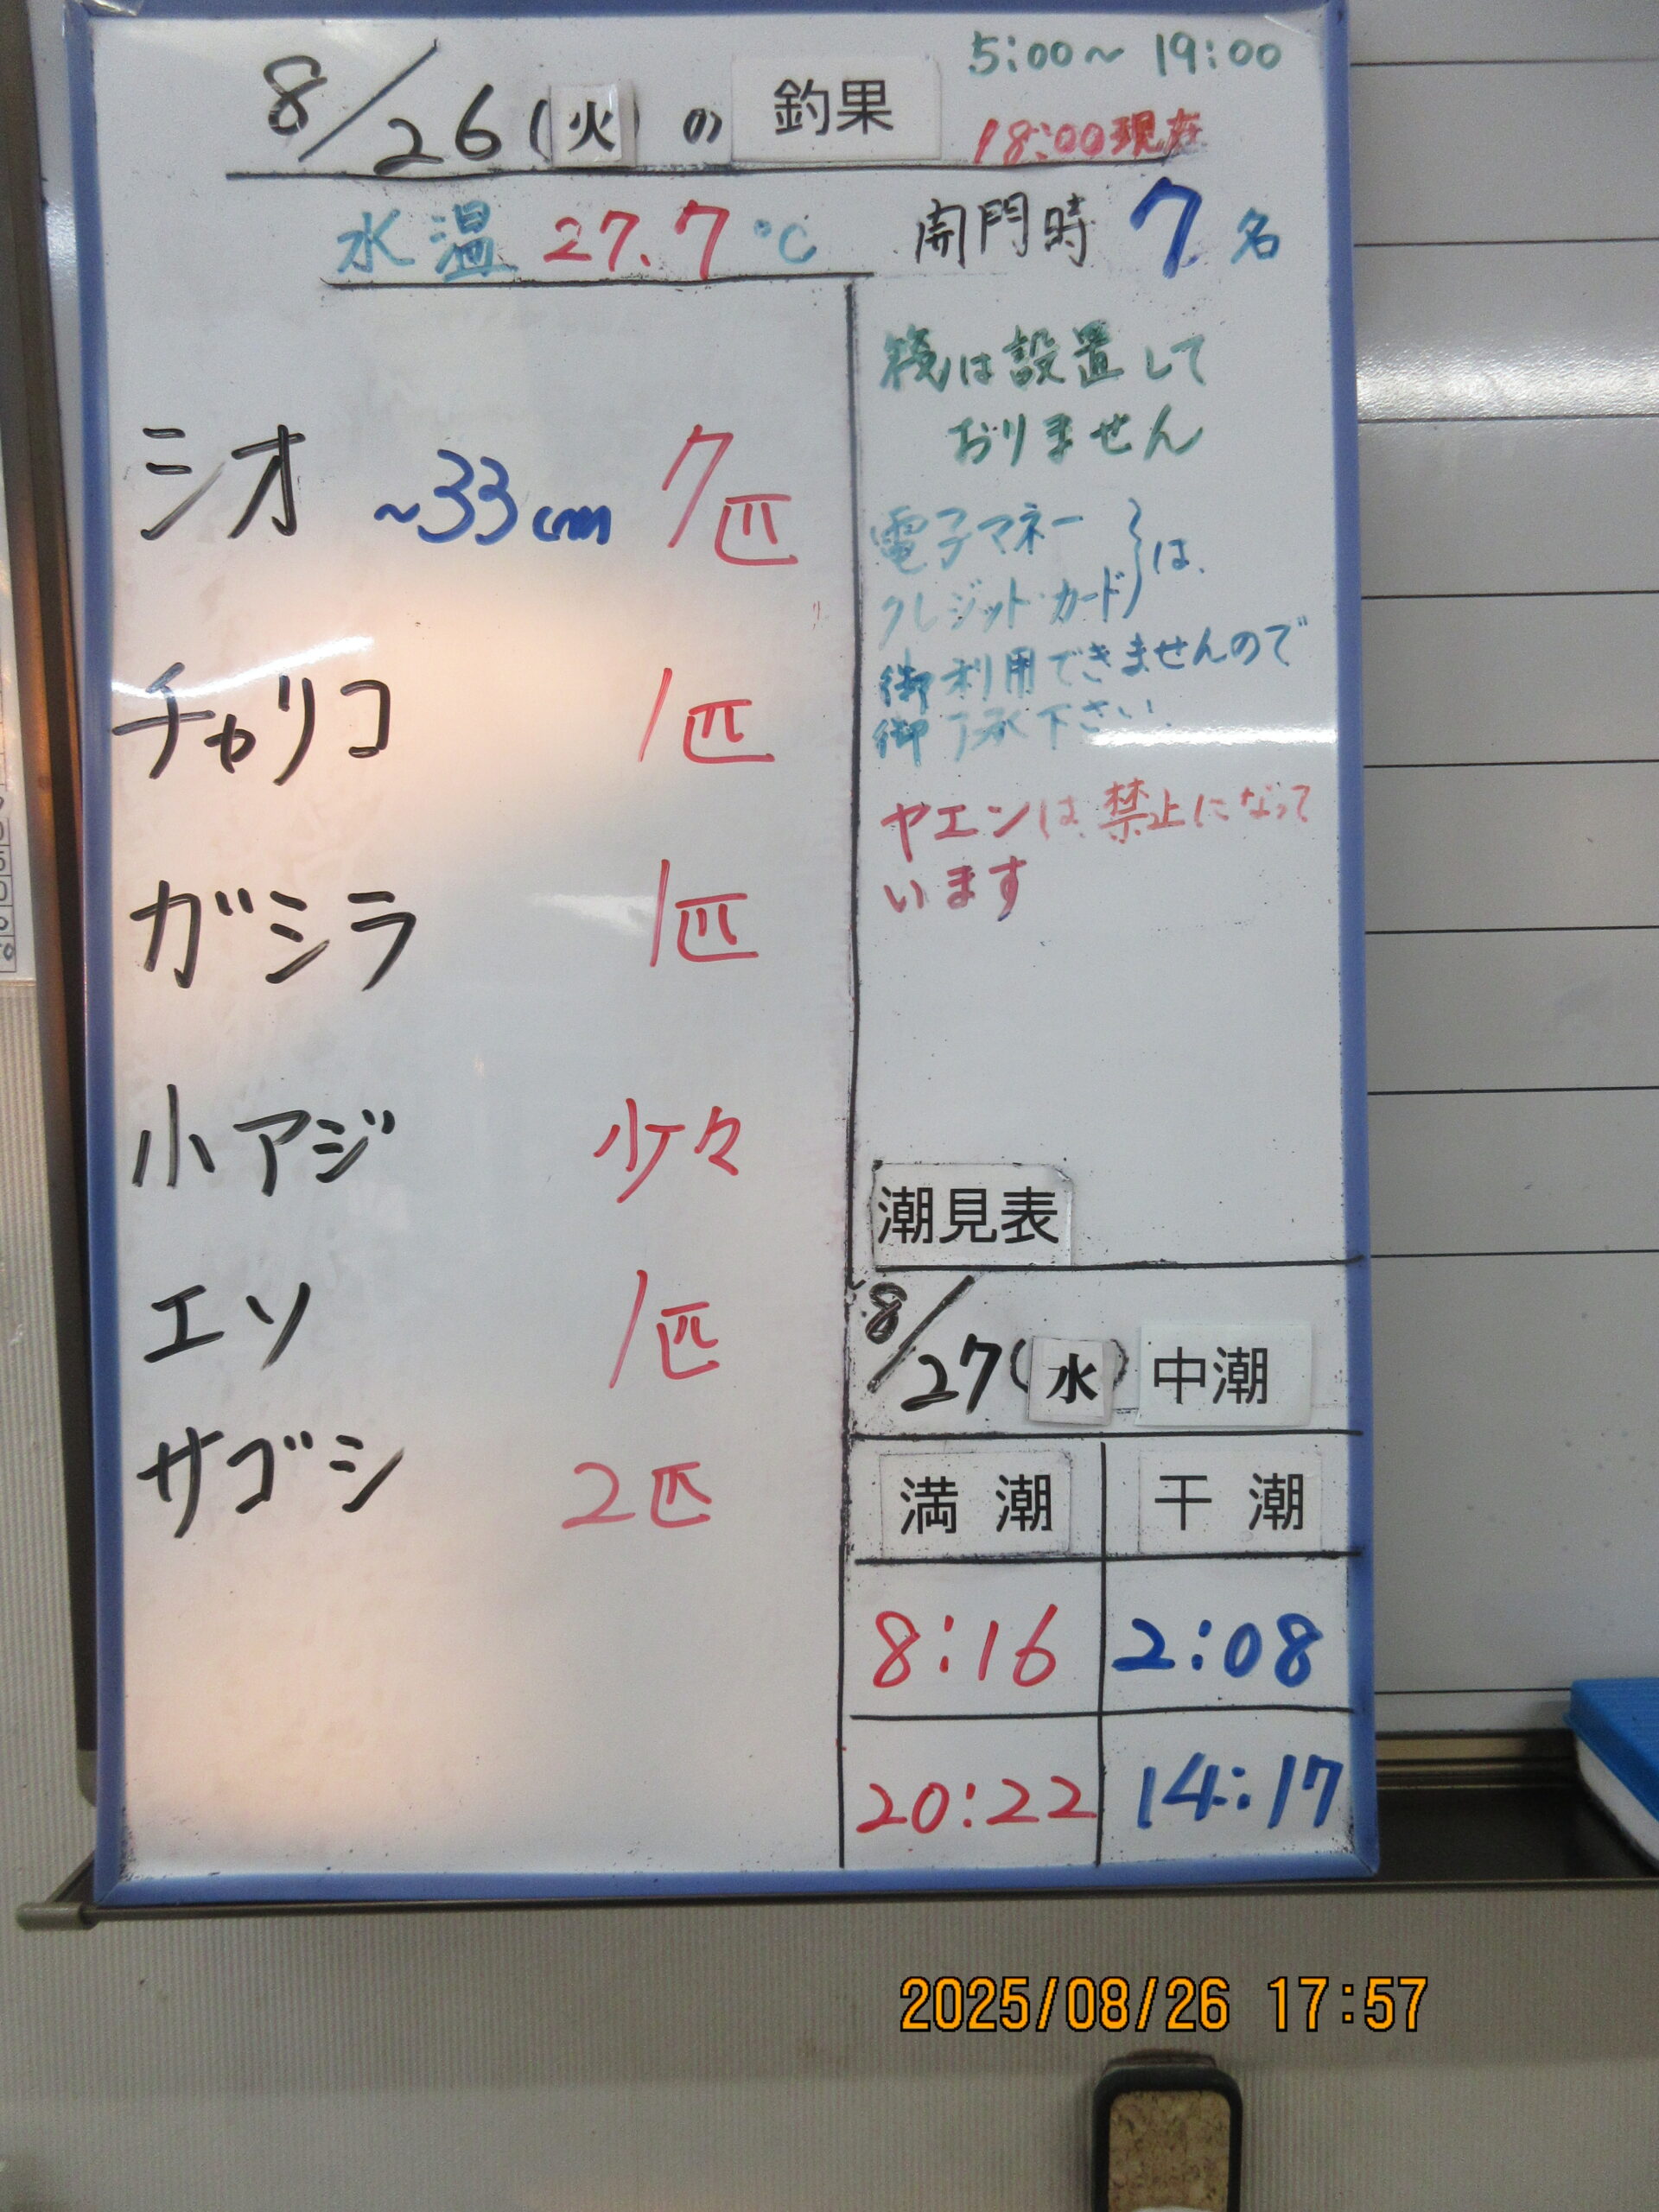 5:00～19:00
8/26(火)の釣果
18:00現在
水温 27.7℃ 開門時 7名
シオ ~33cm 7匹
チャリコ 1匹
ガシラ 1匹
小アジ 少々
エソ 1匹
サゴシ 2匹
は設置して
おりません
電子マネー
クレジット・カード}は、
御利用できませんので
御了承下さい.
ヤエンは、禁止になって
います
潮見表
8/27(水) 中潮
満潮 干潮
8:16 2:08
20:22 14:17
2025/08/26 17:57